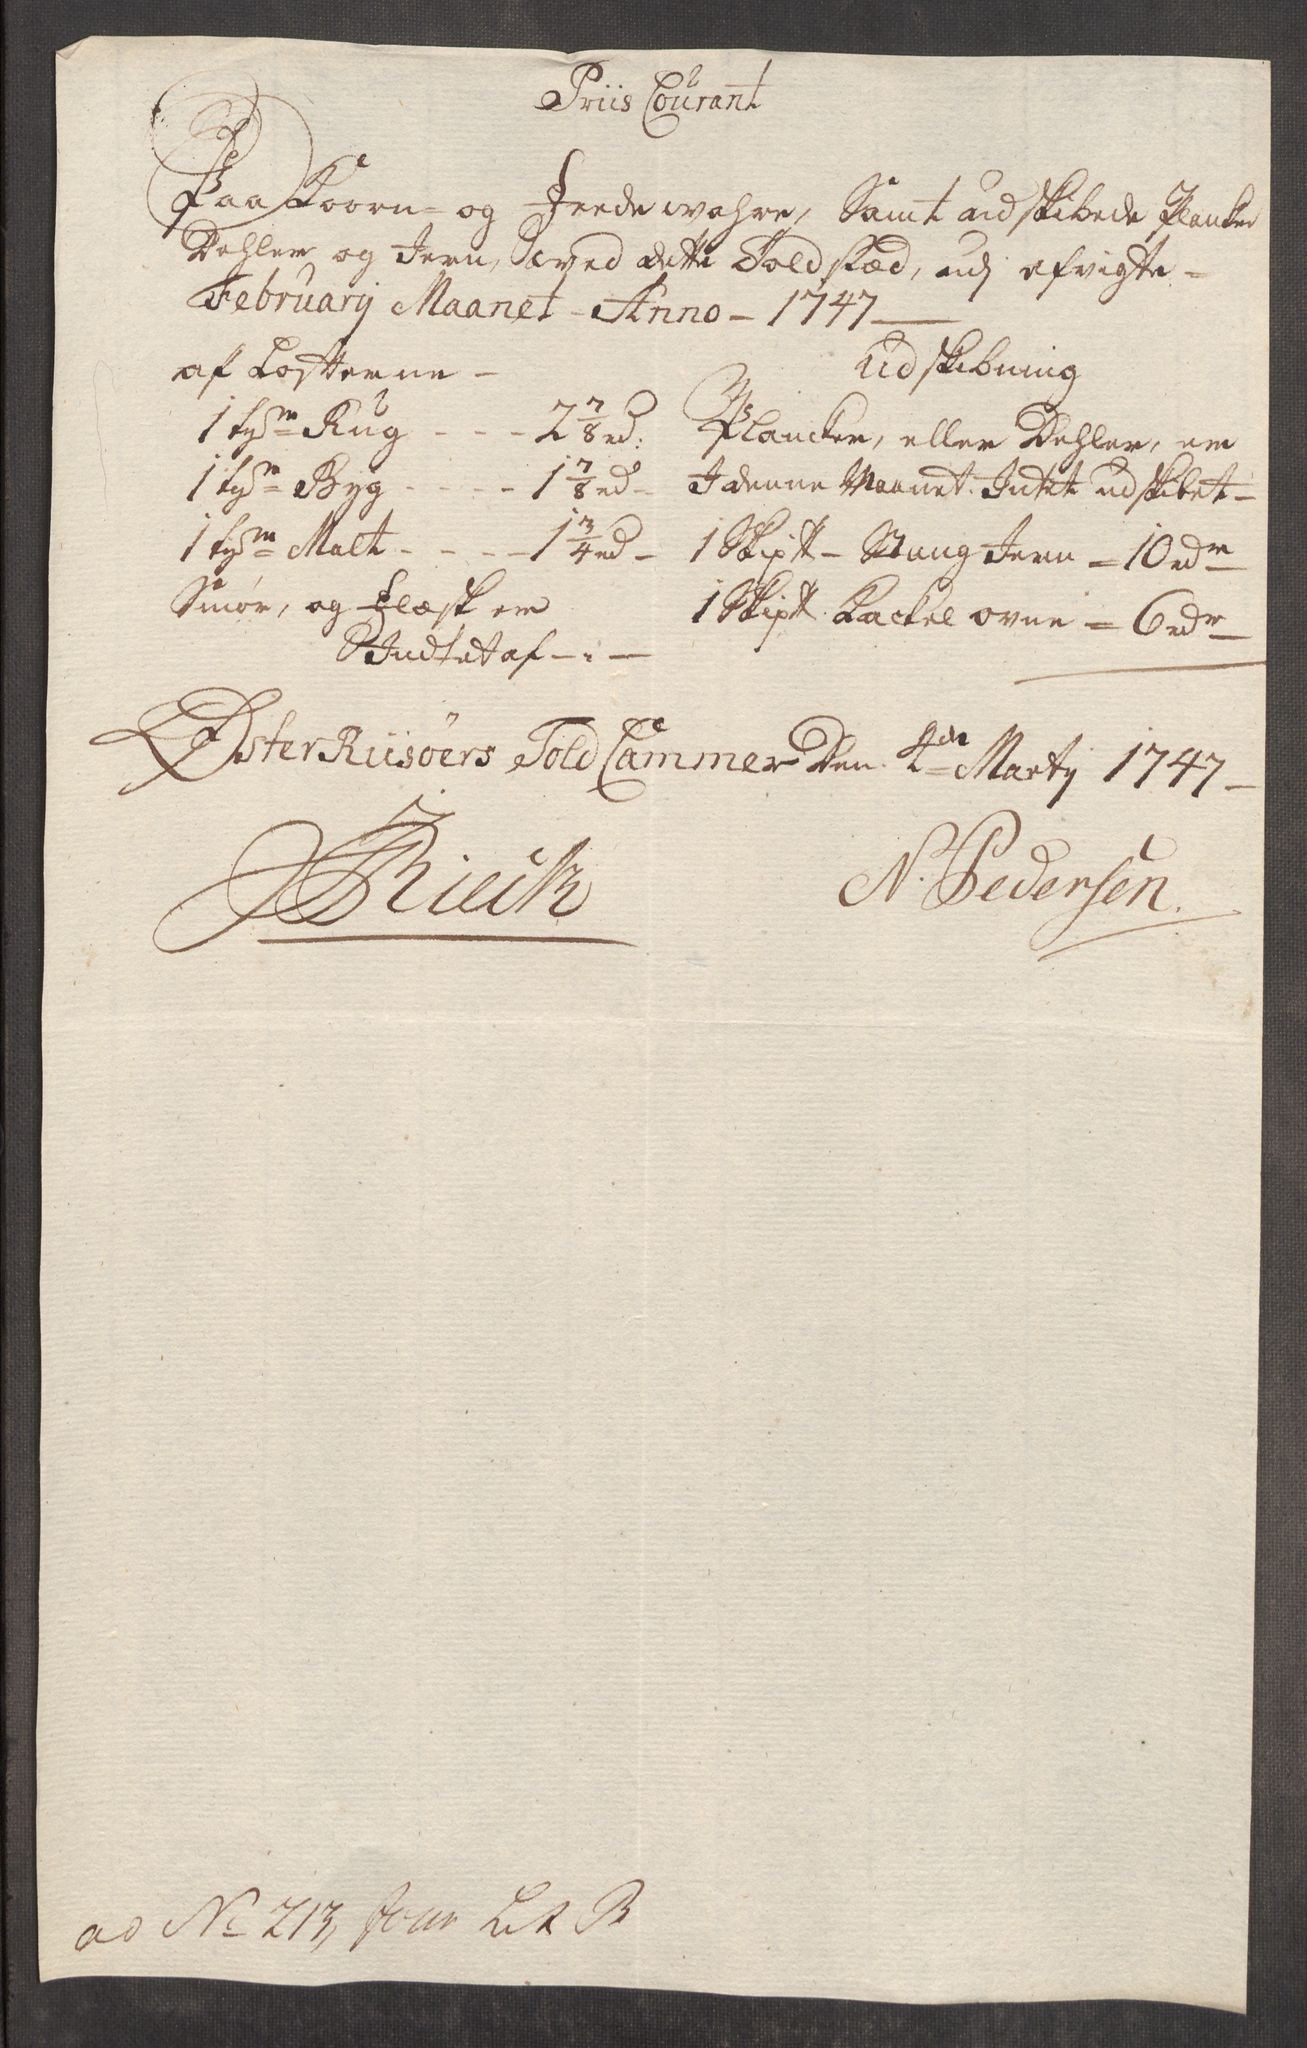 Priis Courant
Paa Koorn- og Feede wahre, Samt udskibede Plancker
Dehler og Jern, wed dette Toldstæd, udj afvigte -
Februarij Maanet - Anno - 1747 -
af Kosterne -
1 tyn: Rug - - - 2 7/8 rd:
1 tyn: Byg - - - - 1 7/8 rd -
1 tyn: Malt - - - - 1 3/4 rd -
Smør, og Flæsk er
Indtet af - : -
Udskibning
Plancker, eller Dehler, er
I denne Maanet Intet udskibet -
1 Skip℔ - Stang Jern = 10 rdr -
1 Skip℔ Kackel ovne = 6 rdr -
ØsterRiisøers Told Cammer Den 4de Martj 1747 -
Rieck
N. Pedersen.
ad No 213, Jour Lit B